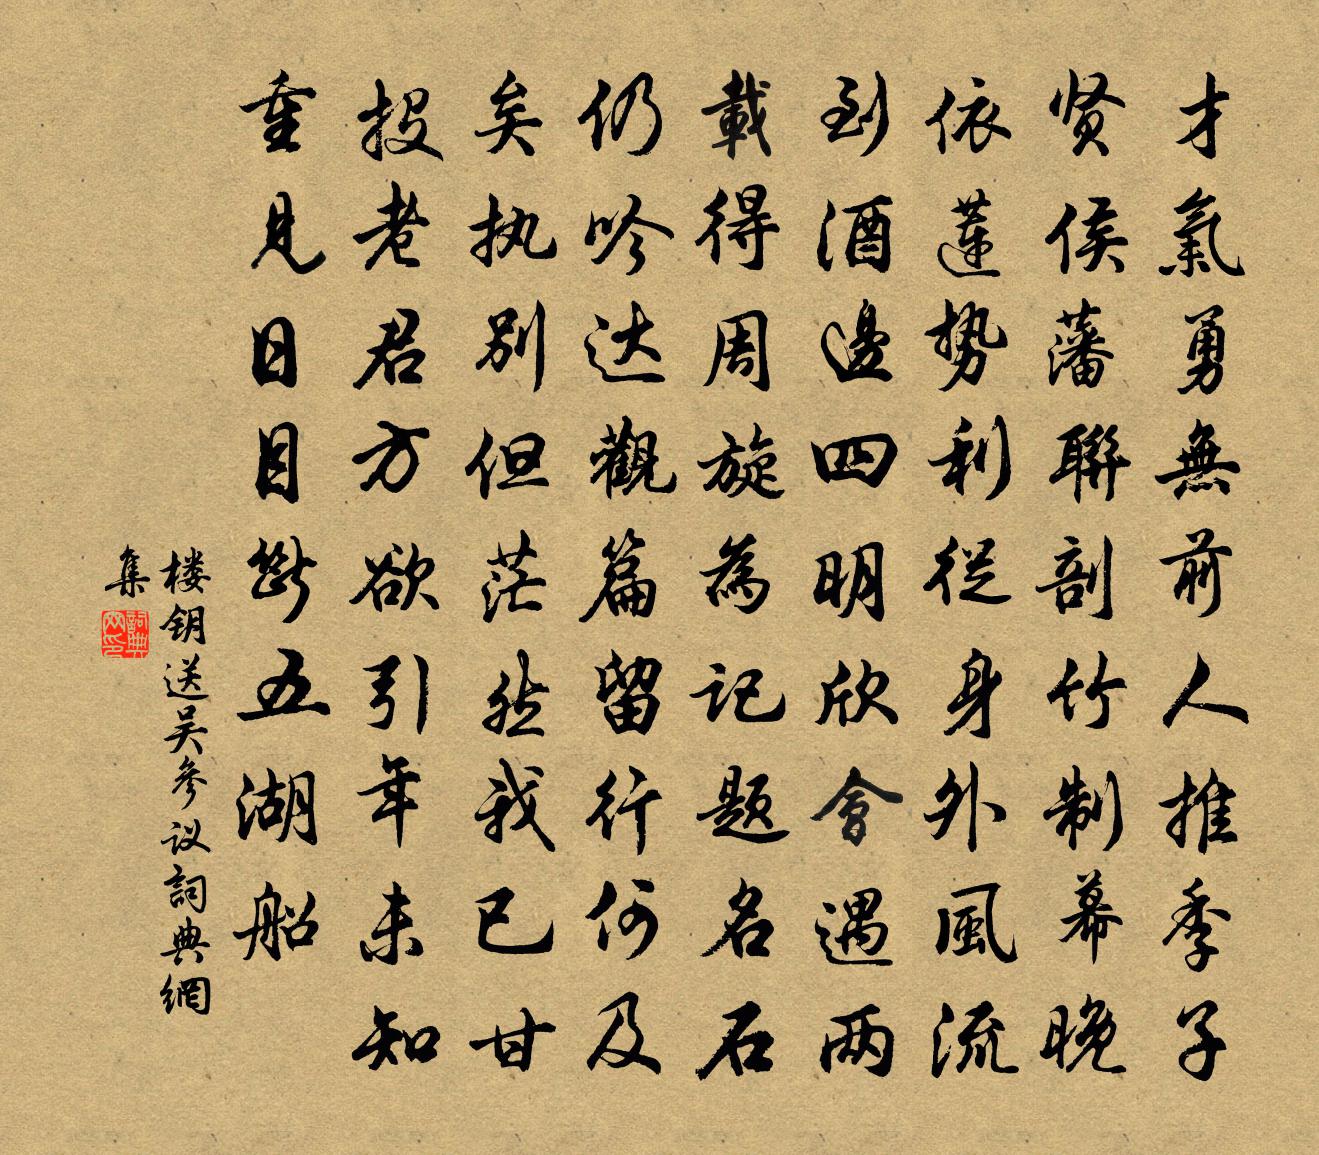 才氣勇無前人推季子
贤侯藩聯剖竹制幕晚
依蓮勢利從身外風流
到酒邊四明欣會遇两
載得周旋為记题名石
仍吟达觀篇留行何及
矣执别但茫然我已甘
投老君方欲引年未知
重見日目断五湖船
楼钥送吴参议詞典網
集
詞典
网印